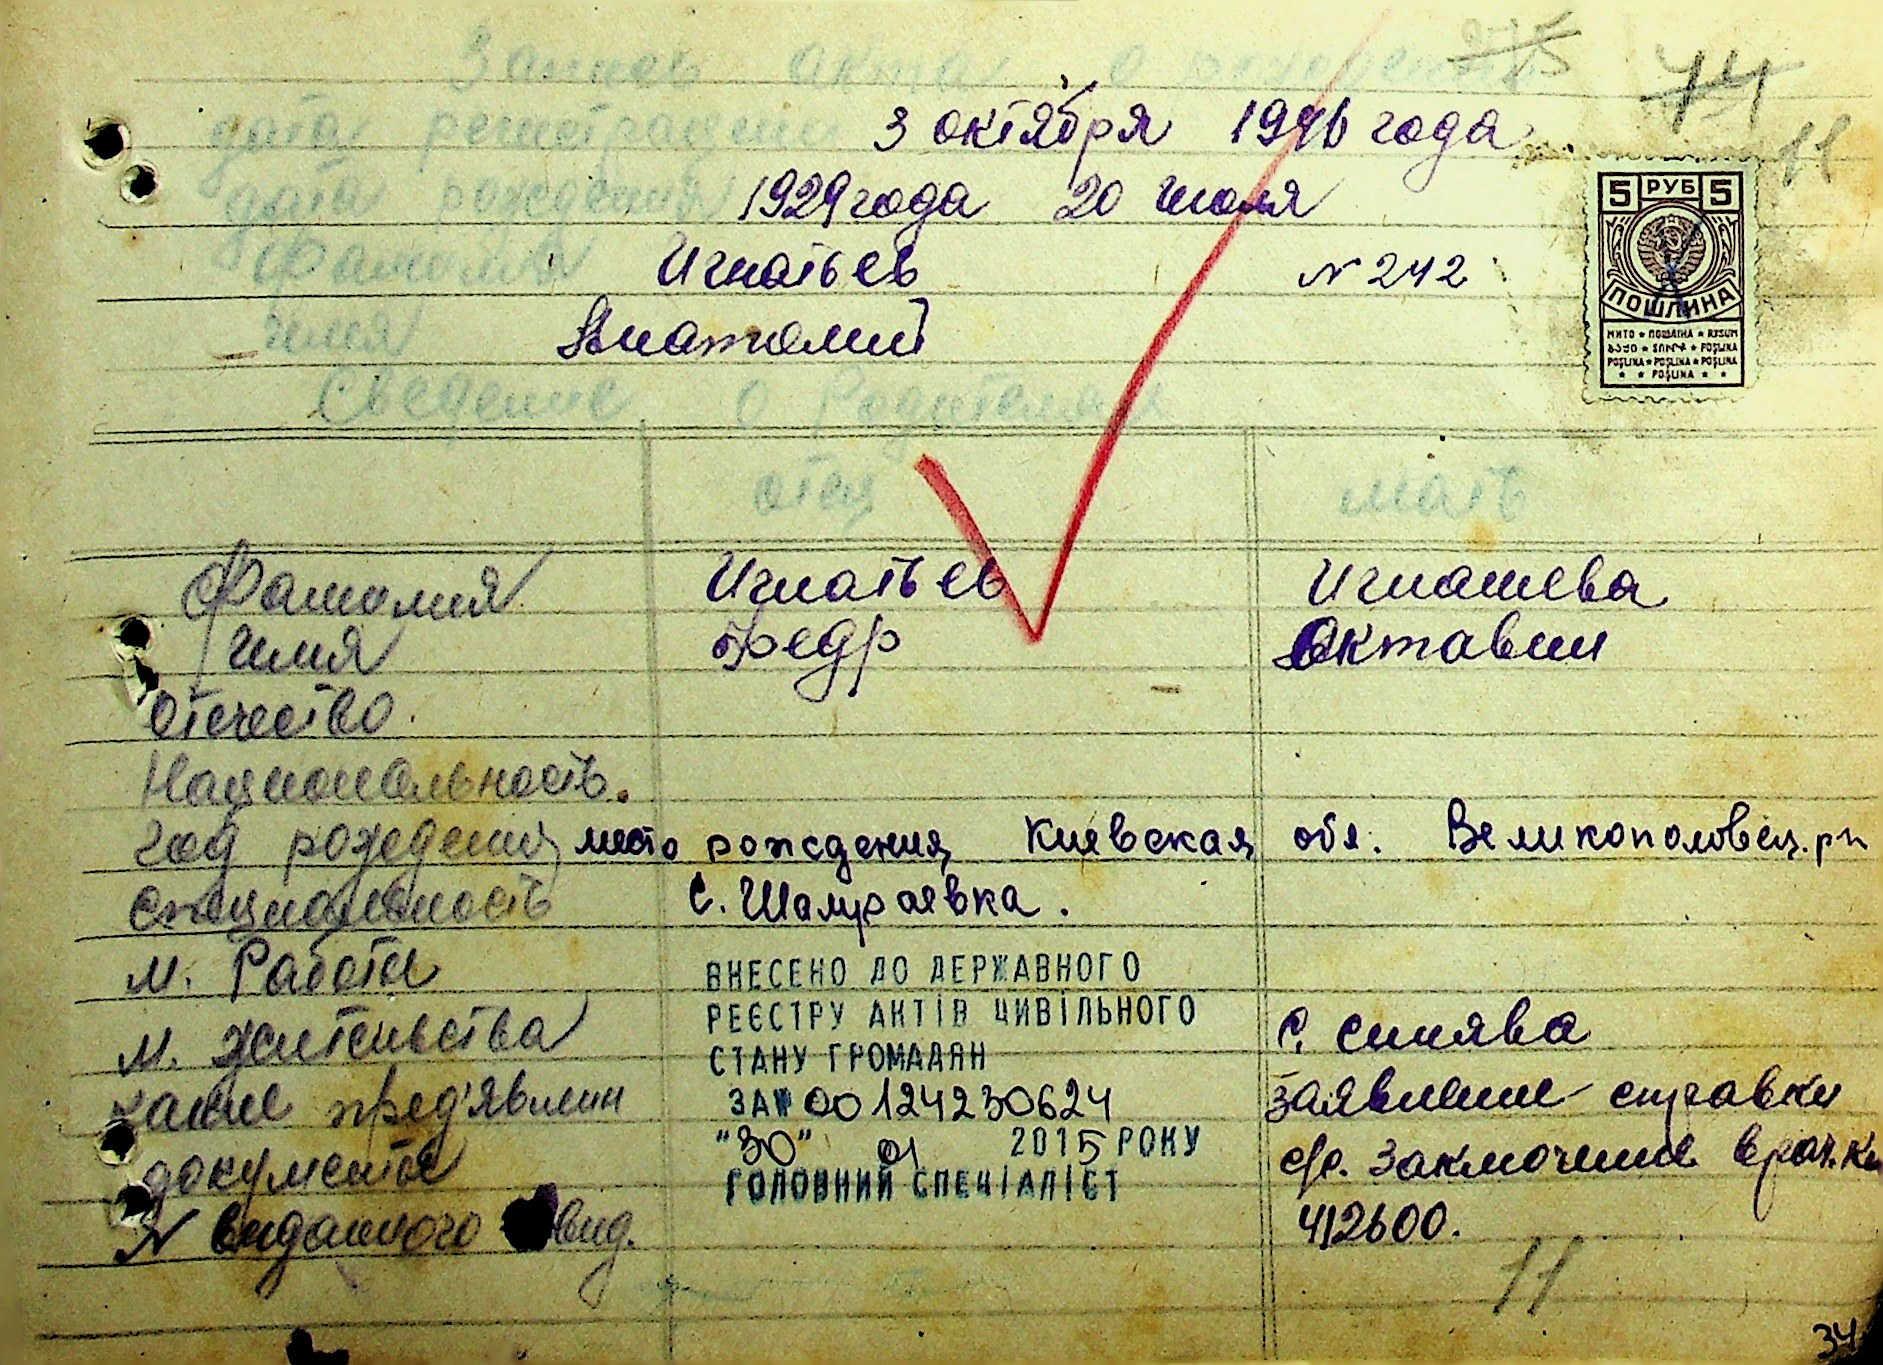 275
44
Запись акта о рождении
дата регистрации 3 октября 1946 года
11
дата рождения 1929 года 20 июля
Фамилия Игнатьев № 242
имя Анатолий
5 РУБ 5
ПОШЛИНА
МИТО ★ ПОШЛІНА ★ RÜSUM
POŞLINA ★ POŞLINA ★ POŞLINA
★ ★ POŞLINA ★ ★
Сведение о Родителях
отец мать
Фамилия Игнатьев Игнатева
имя Федр Октавии
отчество.
Национальность.
год рождения место рождения Киевская обл. Великополовец. рн
специальность С. Шамраевка.
м. Работы
ВНЕСЕНО ДО ДЕРЖАВНОГО
РЕЄСТРУ АКТІВ ЦИВІЛЬНОГО
м. жительства С. Синява
СТАНУ ГРОМАДЯН
какие пред'явлени заявление справки
ЗА № 00124230624
"30" 01 2015 РОКУ
документы с/р. Заключение врач. к
ГОЛОВНИЙ СПЕЦІАЛІСТ
N виданого свид. 412600.
11
34